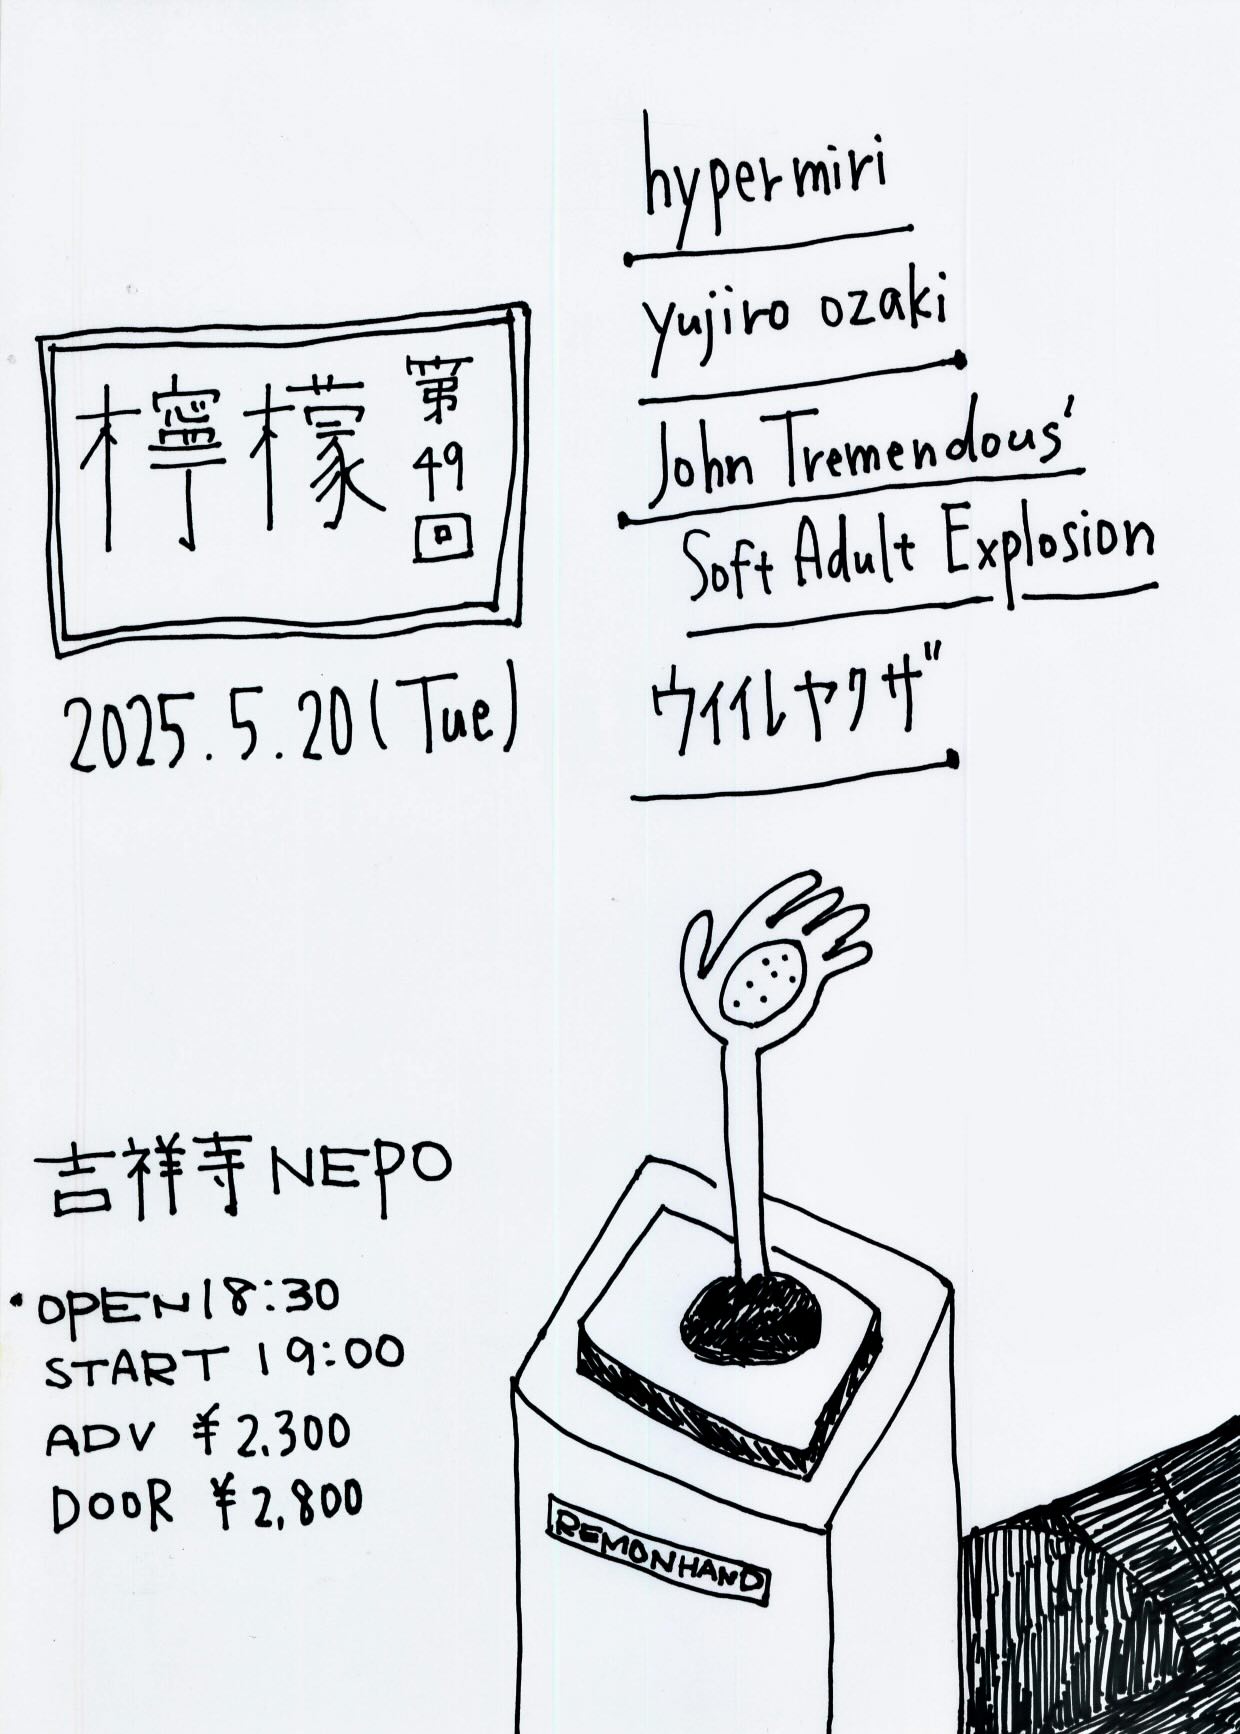 檸檬 第49回
2025.5.20(Tue)
hypermiri
yujiro ozaki
John Tremendous'
Soft Adult Explosion
ウィイルヤクザ
吉祥寺NEPO
・OPEN 18:30
START 19:00
ADV ¥2,300
DOOR ¥2,800
REMONHAND